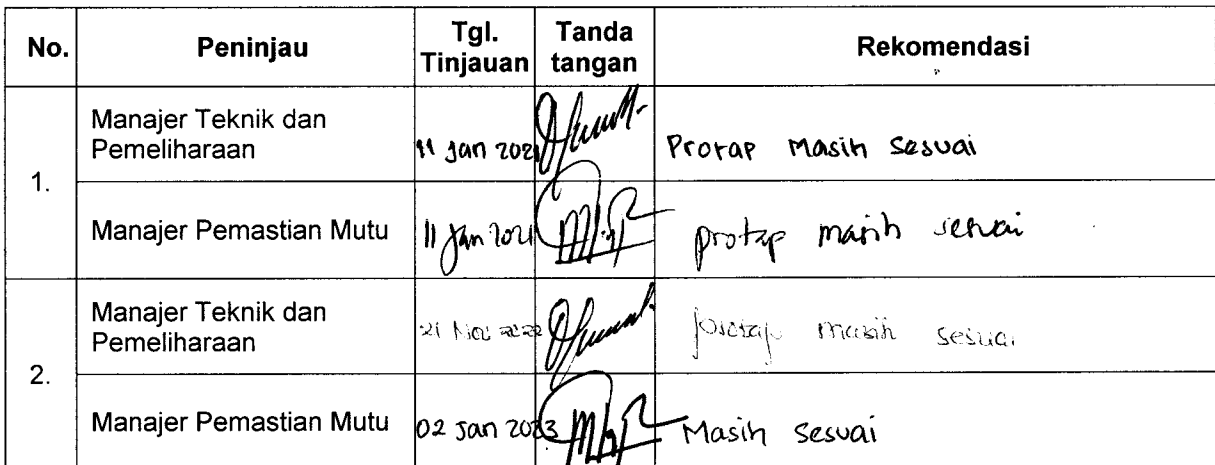 No. Peninjau Tgl. Tinjauan Tanda tangan Rekomendasi
1.
Manajer Teknik dan
Pemeliharaan
11 Jan 2021
Protap Masih Sesuai
Manajer Pemastian Mutu
11 Jan 2021
protap masih sesuai
2.
Manajer Teknik dan
Pemeliharaan
21 Nov 2022
protap masih sesuai
Manajer Pemastian Mutu
02 Jan 2023
Masih Sesuai